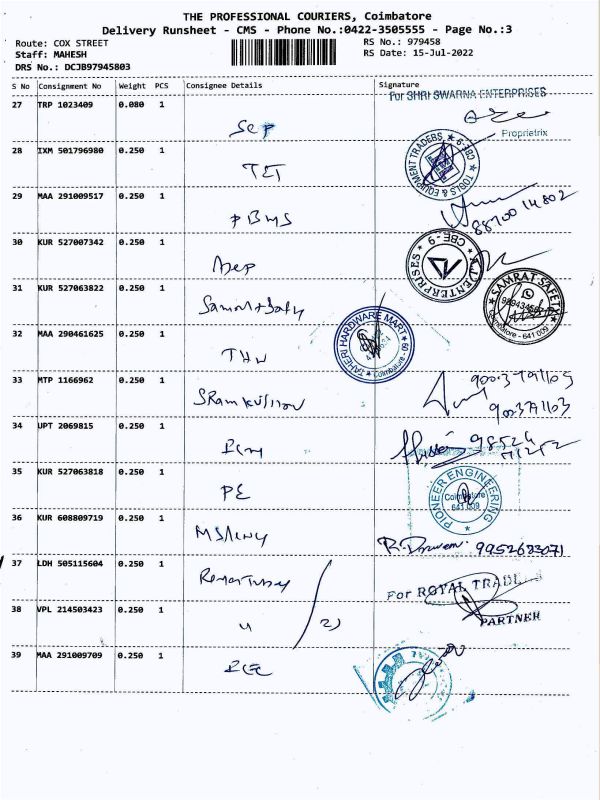 THE PROFESSIONAL COURIERS, Coimbatore
Delivery Runsheet - CMS - Phone No.:0422-3505555 - Page No.:3
Route: COX STREET
Staff: MAHESH
DRS No.: DCJB97945803
RS No.: 979458
RS Date: 15-Jul-2022
S No Consignment No Weight PCS Consignee Details Signature
For SHRI SWARNA ENTERPRISES
27 TRP 1023409 0.080 1
Proprietrix
28 IXM 501796980 0.250 1 TET
TOOLS & EQUIPMENT TRADERS ★ CBE-9 ★
29 MAA 291009517 0.250 1 PBMS
30 KUR 527007342 0.250 1
A.J. ENTERPRISES ★ CBE-9 ★
31 KUR 527063822 0.250 1
SAMRAT SAFETY
Coimbatore - 641 009
32 MAA 290461625 0.250 1 THW
TAHERI HARDWARE MART
Coimbatore - 09
33 MTP 1166962 0.250 1
9003791103
34 UPT 2069815 0.250 1
35 KUR 527063818 0.250 1 PE
PIONEER ENGINEERING
Coimbatore
641 009
36 KUR 608809719 0.250 1
37 LDH 505115604 0.250 1
For ROYAL TRADE
38 VPL 214503423 0.250 1 "
PARTNER
39 MAA 291009709 0.250 1